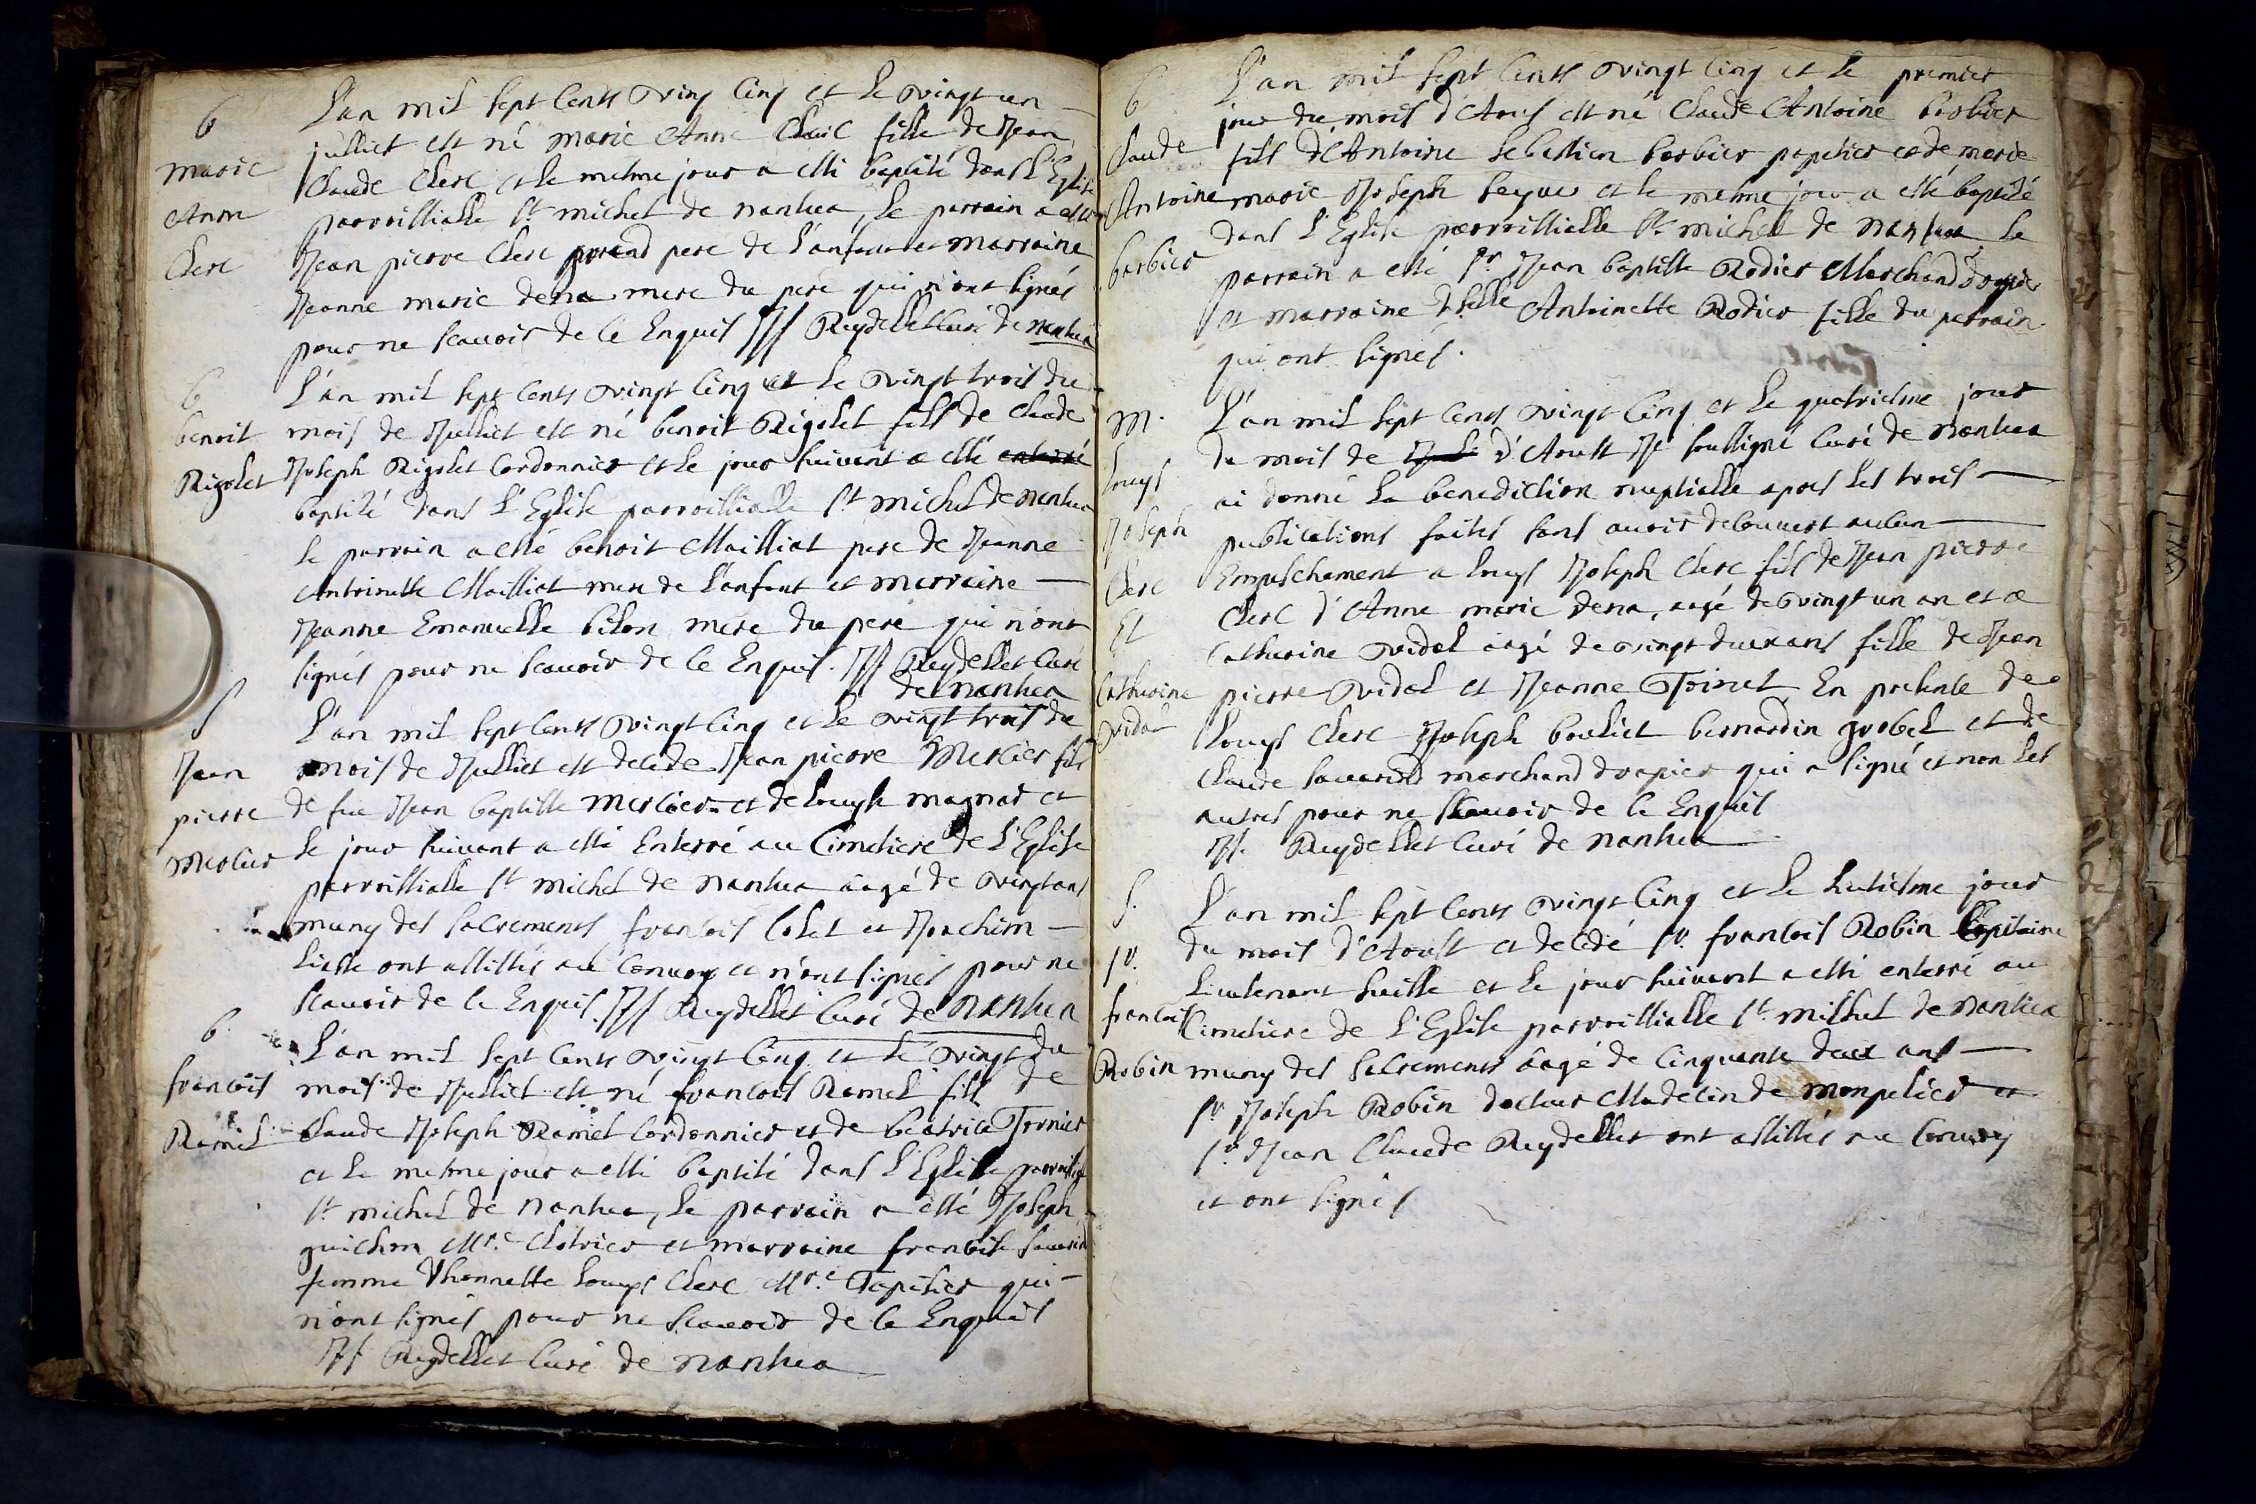 b
marie
Anne
Clerc
L'an mil sept cents vingt cinq et le vingt un
julliet est né marie Anne Clerc fille de Jean
Claude Clerc et le mesme jour a esté baptisé dans l'Eglise
parroissialle st michel de nantua, le parrain a esté
Jean pierre Clerc grand pere de l'anfant et marraine
Jeanne marie dena mere du pere qui n'ont signés
pour ne scauoir de ce Enquis JJ Reydellet Curé de nantua
b
benoit
Rigolet
L'an mil sept cents vingt cinq et le vingt trois du
mois de Julliet est né benoit Rigolet fils de Claude
Joseph Rigolet Cordonnier et le jour suivant a esté enterré
baptisé dans l'Eglise parroissialle st michel de nantua
le parrain a esté benoit Mailliat pere de Jeanne
Antoinette Mailliat mere de l'anfant et marraine
Jeanne Emanuelle bilon mere du pere qui n'ont
signés pour ne scauoir de ce Enquis. JJ Reydellet Curé
de nantua
S
Jean
pierre
Mercier
L'an mil sept cents vingt cinq et le vingt trois du
mois de Julliet est decede Jean pierre Mercier fils
de fue Jean baptiste mercier et de Louyse magnat et
le jour suivant a esté Enterré au Cimetiere de l'Eglise
parroissialle st michel de nantua aagé de vingt ans
muny des sacrements francois Colet et Joachim
Liasse ont assistés au Convoy et n'ont signés pour ne
scauoir de ce Enquis. JJ Reydellet Curé de nantua
b.
francois
Ramel
L'an mil sept cents vingt cinq et le vingt du
mois de Julliet est né francois Ramel fils de
Claude Joseph Ramel Cordonnier et de beatrice Tornier
et le mesme jour a esté baptisé dans l'Eglise parroissialle
st michel de nantua, le parrain a esté Joseph
guichon Mre. Clotrier et marraine francoise sauarin
femme d'honneste Louys Clerc Mre. Tapisier qui
n'ont signés pour ne scauoir de ce Enquis
JJ Reydellet Curé de nantua
b
Claude
Antoine
barbier
L'an mil sept cents vingt cinq et le premier
jour du mois d'Aous est né Claude Antoine barbier
fils d'Antoine sebastien barbier papetier et de marie
marie Joseph seyue et le mesme jour a esté baptisé
dans l'Eglise parroissialle st michel de nantua le
parrain a esté sr. Jean baptiste Rodier Marchand drapier
et marraine dselle Antoinette Rodier fille du parrain
qui ont signés.
m.
Louys
Joseph
Clerc
Et
Catherine
vidal
L'an mil sept cents vingt cinq et le quatriesme jour
du mois de d'Aoust Je soussigné Curé de nantua
ai donné la benediction nuptialle apres les trois
publications faites sans auoir decouuert aucun
Empeschement a Louys Joseph Clerc fils de Jean pierre
Clerc d'Anne marie dena, aagé de vingt un an et a
Catherine vidal aagé de vingt deux ans fille de Jean
pierre vidal et Jeanne Toinet En presence de
Louys Clerc Joseph bouliet bernardin grobel et de
Claude sauarin marchand drapier qui a signé et non les
autres pour ne scauoir de ce Enquis
JJ. Reydellet Curé de nantua
S.
sr.
francois
Robin
L'an mil sept cents vingt cinq et le huitiesme jour
du mois d'Aoust et decedé sr. francois Robin Capitaine
Lieutenant suisse et le jour suivant a esté enterré au
Cimetiere de l'Eglise parroissialle st. michel de nantua
muny des sacrements aagé de cinquante deux ans
sr Joseph Robin docteur Madecin de monpelier et
sr Jean Claude Reydellet ont assistés au Conuoy
et ont signés